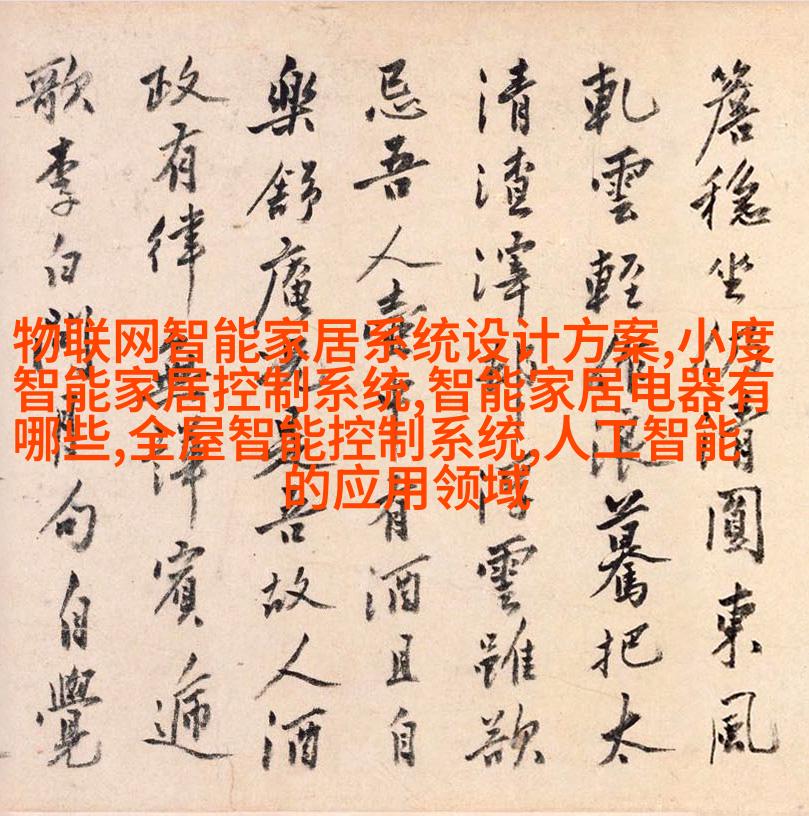 物联网智能家居系统设计方案,小度
智能家居控制系统,智能家居电器有
哪些,全屋智能控制系统,人工智能
的应用领域
簷穩坐清圓東風
軋雲輕浪驀把太
清渣滓雲雖欲
忌吾人有酒且自
樂舒庵是吾故人酒
政有律賓遞
歌李白句自覺